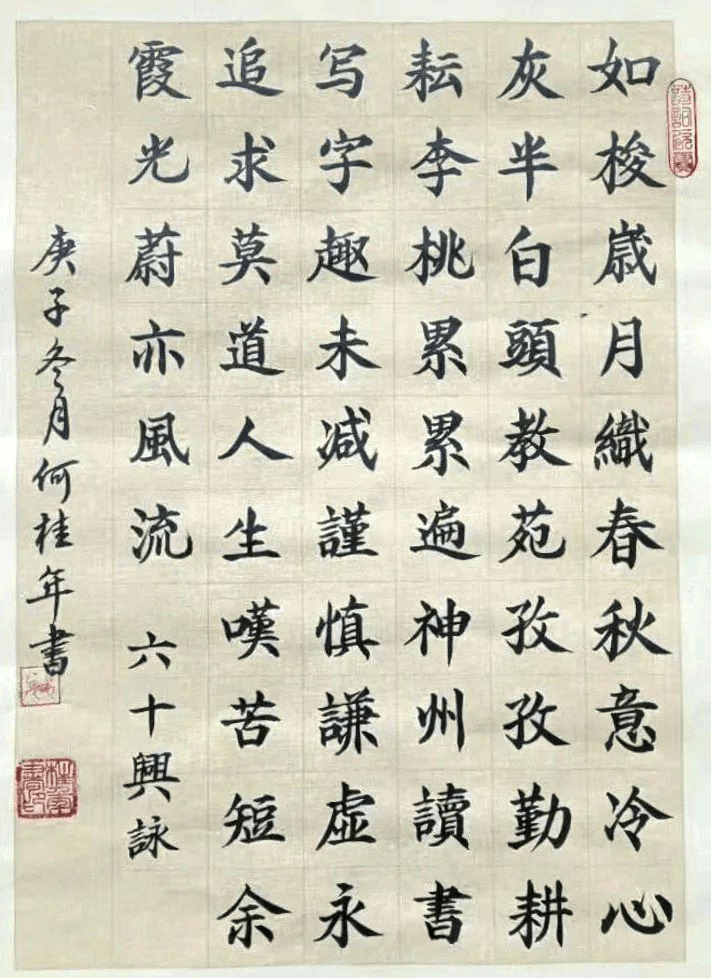 如梭歲月織春秋意冷心
灰半白頭教苑孜孜勤耕
耘李桃累累遍神州讀書
写字趣未减謹慎謙虚永
追求莫道人生嘆苦短余
霞光蔚亦風流 六十興詠
庚子冬月何桂年書